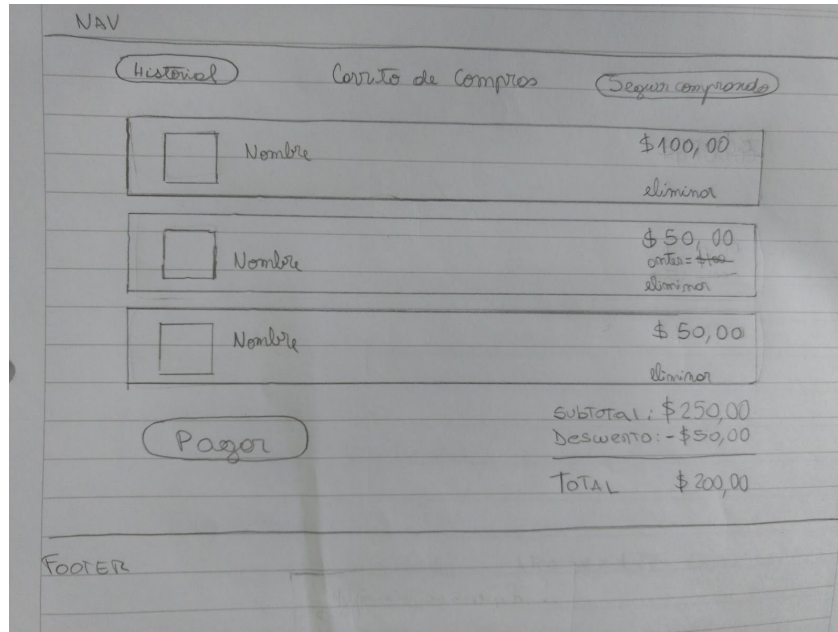 NAV
Historial Carrito de Compras Seguir comprando
Nombre $100,00
eliminar
$50,00
Nombre antes= $100
eliminar
Nombre $50,00
eliminar
SUBTOTAL: $250,00
Pagar Descuento: -$50,00
TOTAL $200,00
FOOTER